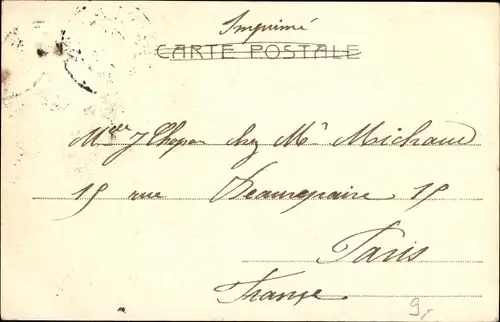 Imprimé
CARTE POSTALE
Mlle J Chopan chez Mr Michaud
15 rue Beaurepaire 15
Paris
France
9,